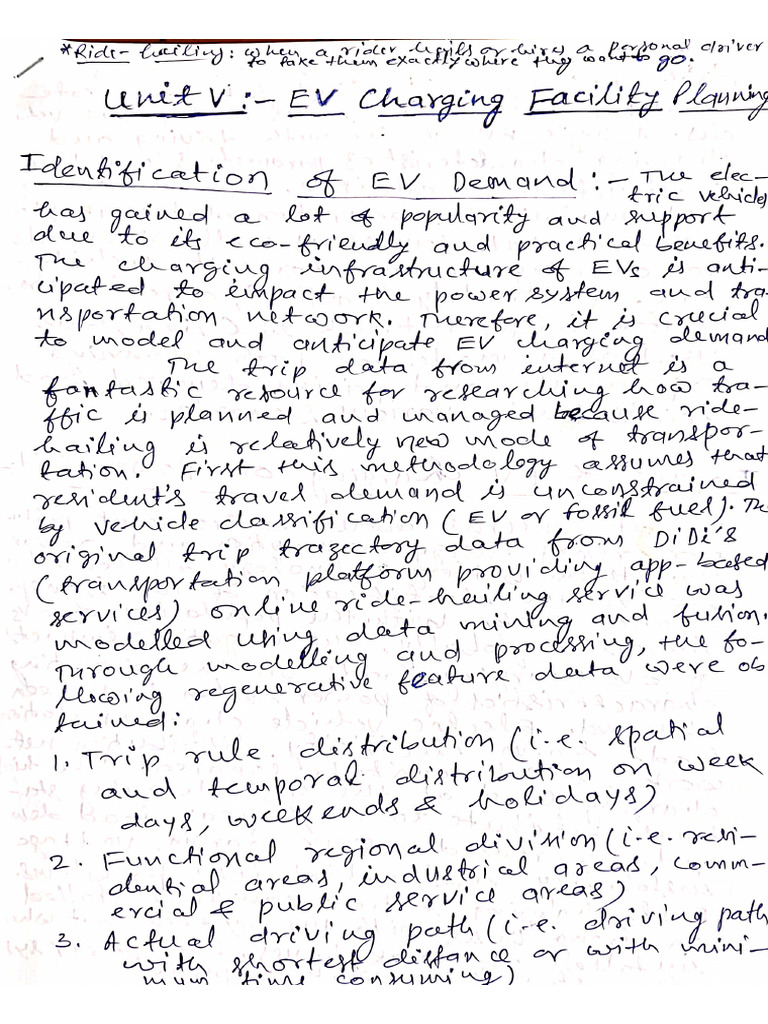 *Ride-hailing: when a rider hails or hires a personal driver
to take them exactly where they want to go.
Unit V :- EV Charging Facility Planning
Identification of EV Demand :- The elec-
tric vehicles
has gained a lot of popularity and support
due to its eco-friendly and practical benefits.
The charging infrastructure of EVs is anti-
cipated to impact the power system and tra-
nsportation network. Therefore, it is crucial
to model and anticipate EV charging demand
The trip data from internet is a
fantastic resource for researching how tra-
ffic is planned and managed because ride-
hailing is relatively new mode of transpor-
tation. First this methodology assumes that
resident's travel demand is unconstrained
by vehicle classification (EV or fossil fuel). The
original trip trazectory data from DiDi's
(transportation platform providing app-based
services) online ride-hailing service was
modelled using data mining and fusion.
Through modelling and processing, the fo-
llowing regenerative feature data were ob
tained:
1. Trip rule distribution (i.e. spatial
and temporal distribution on week
days, weekends & holidays)
2. Functional regional division (i.e. resi-
dential areas, industrial areas, comm-
ercial & public service areas)
3. Actual driving path (i.e. driving path
with shortest distance or with mini-
mum time consuming)